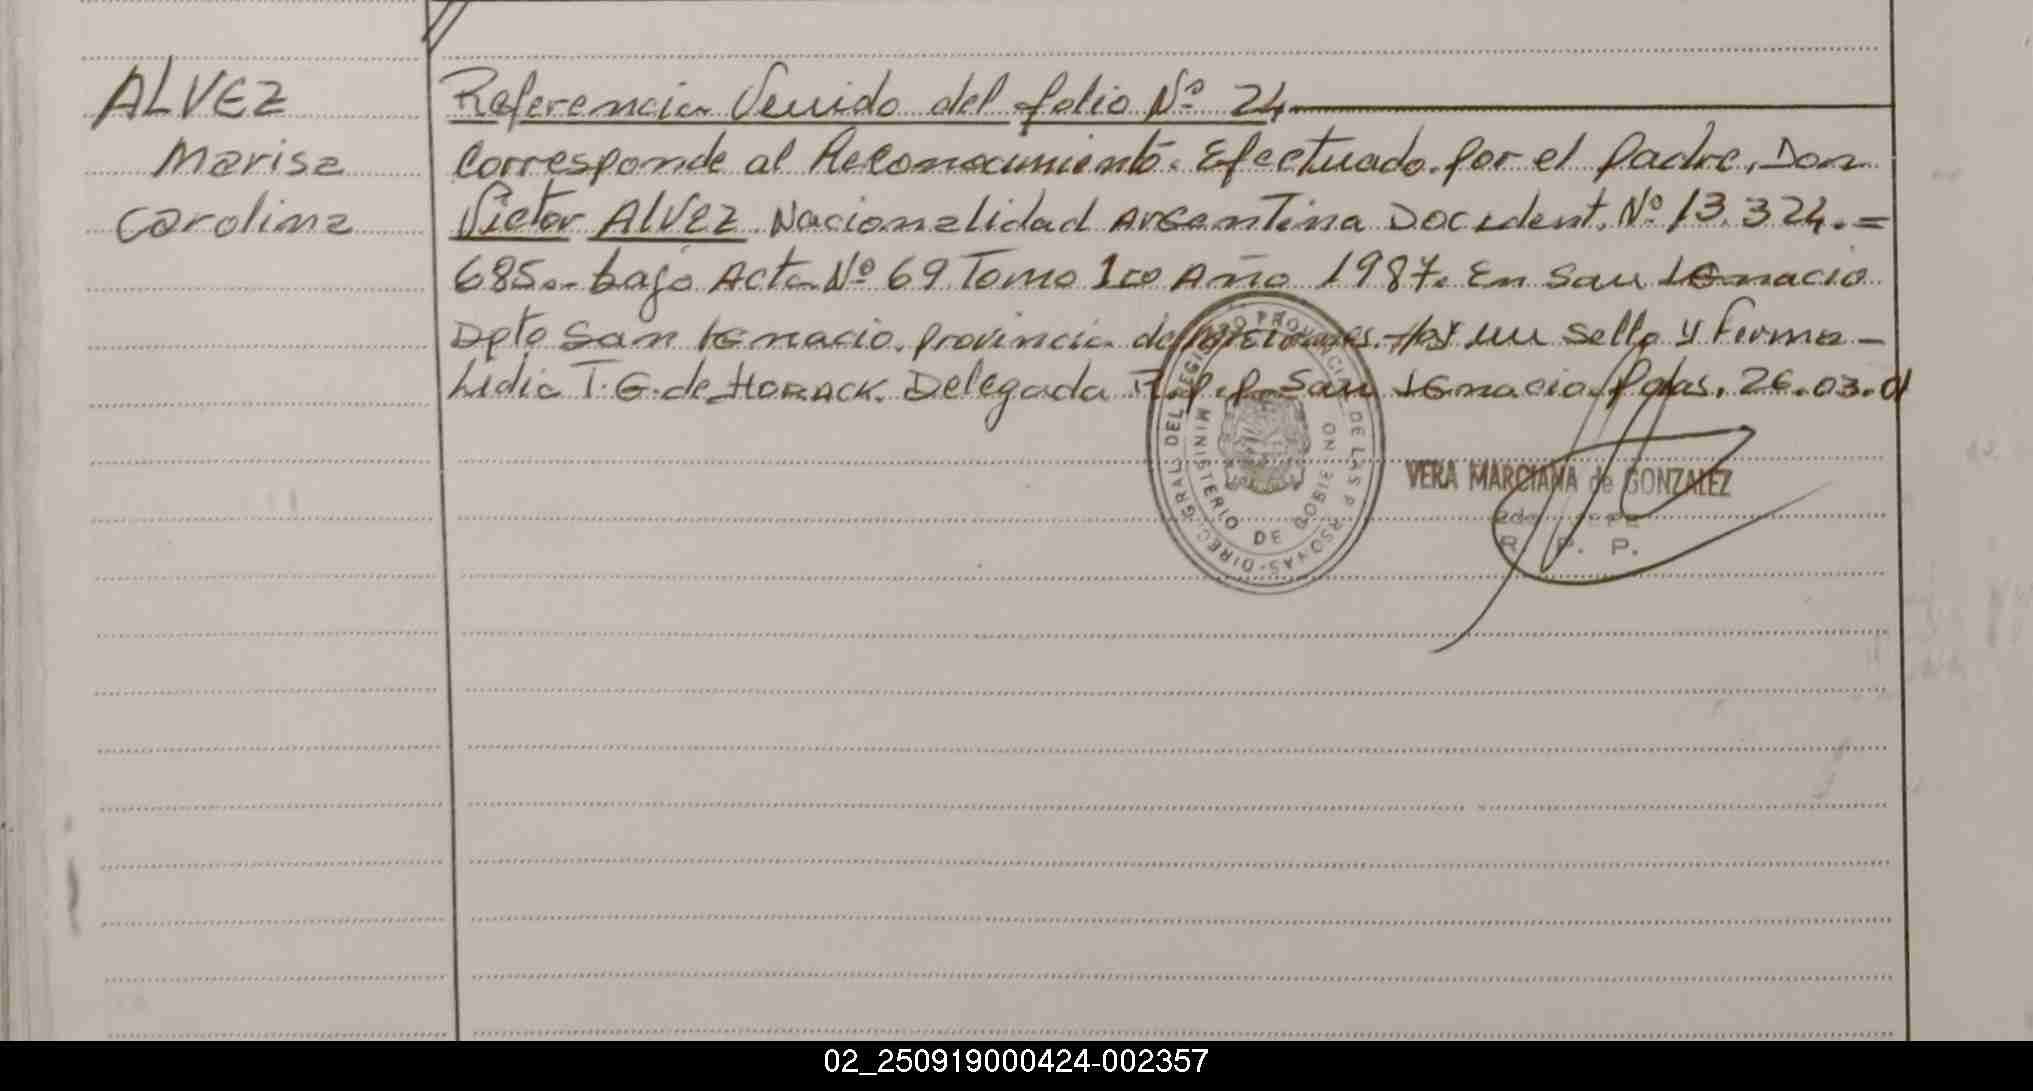 ALVEZ
Marisa
Carolina
Referencia Venido del folio Nº 24
Corresponde al Reconocimiento. Efectuado. por el Padre, Don
Victor ALVEZ. Nacionalidad Argentina Doc ident. Nº 13.324.=
685.- bajo Acta Nº 69 Tomo 1ro Año 1987. En San Ignacio
Dpto San Ignacio. Provincia de Misiones. Hay un sello y Firma -
Lidia T. G. de HORACK. Delegada R.P.P. San Ignacio. Pdas. 26.03.01
DIREC. GRAL. DEL REGISTRO PROVINCIAL DE LAS PERSONAS
MINISTERIO DE GOBIERNO
VERA MARCIANA de GONZALEZ
R. P. P.
02_250919000424-002357